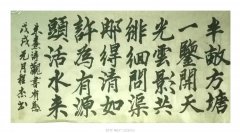 半畝方塘
一鑒開天
光雲影共
徘徊問渠
那得清如
許為有源
頭活水来
朱熹詩觀書有感
戊戌